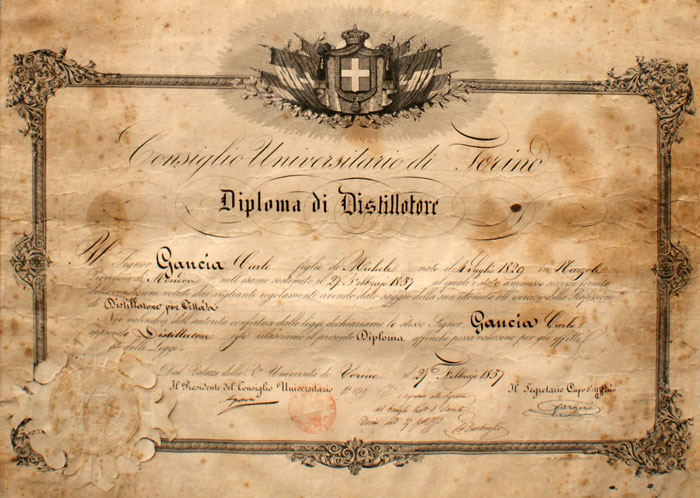 Consiglio Universitario di Torino
Diploma di Distillatore
Il Signor Gancia Carlo figlio di Michele nato il 4 Luglio 1829 in Narzole
Provincia di Mondovì nell'esame sostenuto il 27 Febbraio 1857 al quale è stato ammesso
voluta dai vigilanti regolamenti avendo dato saggio della sua idoneità all'esercizio della Professione
di Distillatore per Città
Noi valendoci dell'autorità conferitaci dalle leggi dichiariamo lo stesso Signor Gancia Carlo
approvato Distillatore e gli rilasciamo il presente Diploma affinchè possa valersene per gli effetti
dalle Leggi
Dal Palazzo della Università di Torino il 27 Febbraio 1857
Il Presidente del Consiglio Universitario
Il Segretario Capo d'uffizio